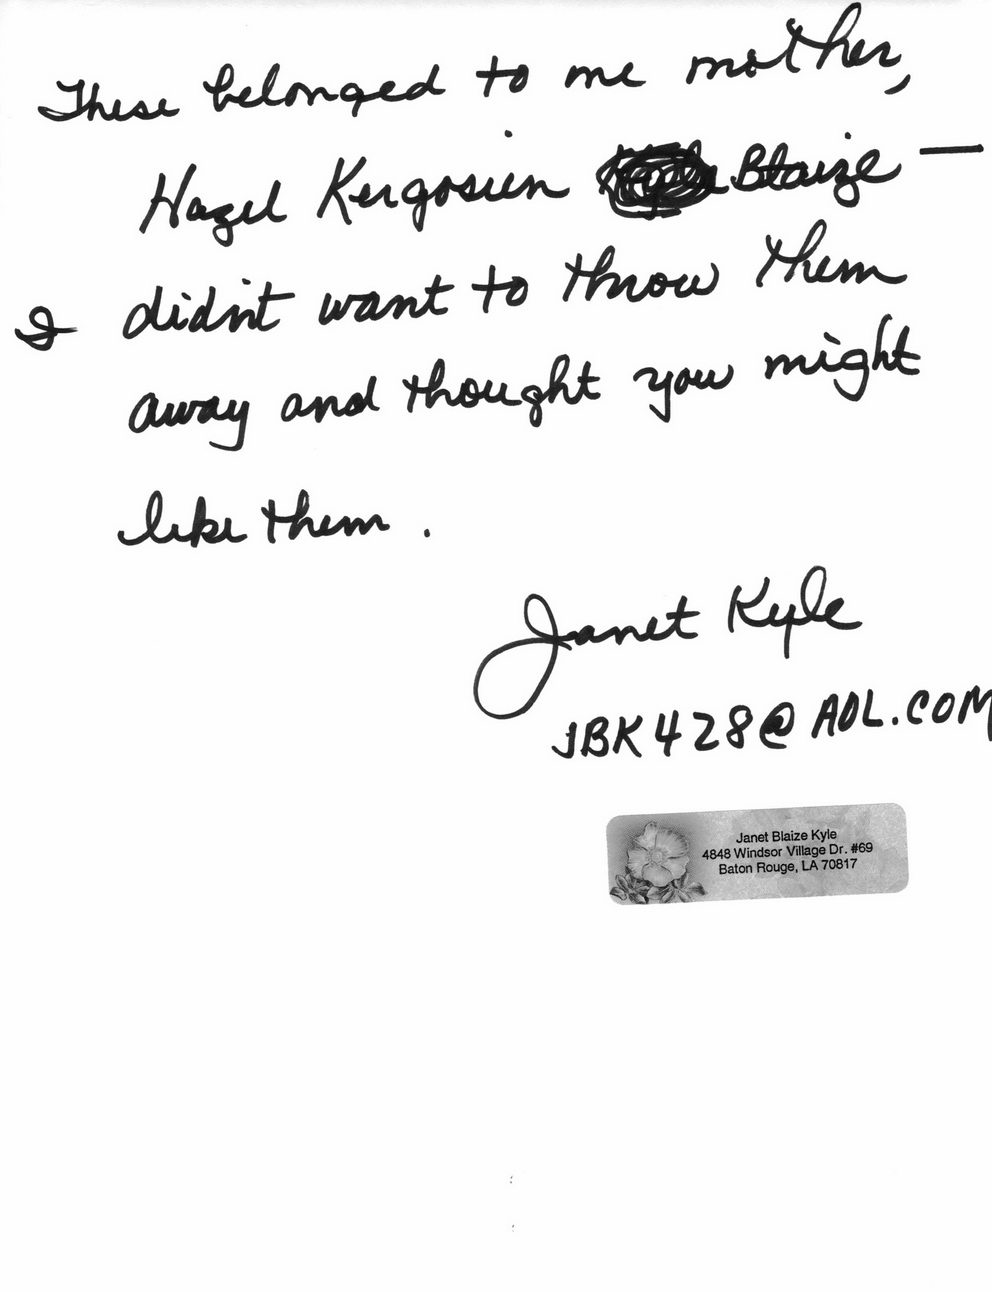 These belonged to me mother,
Hazel Kergosien Blaize —
I didn't want to throw them
away and thought you might
like them.
Janet Kyle
JBK428@AOL.COM
Janet Blaize Kyle
4848 Windsor Village Dr. #69
Baton Rouge, LA 70817